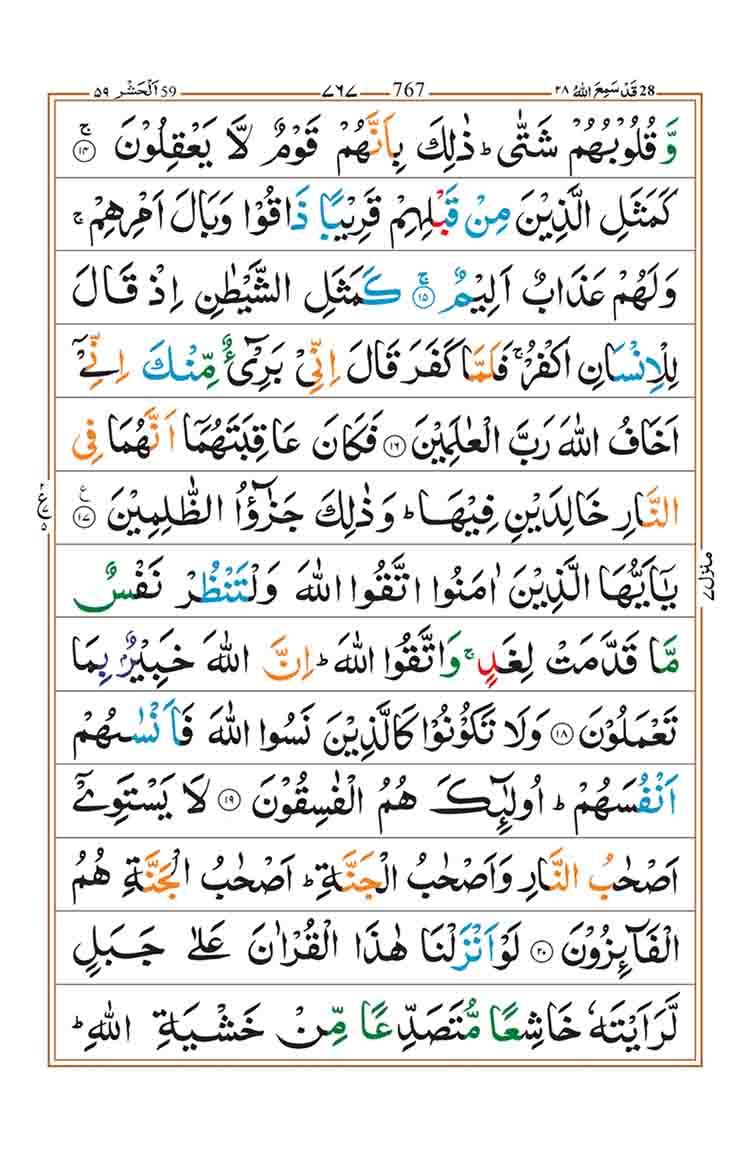 28 قَدْ سَمِعَ اللهُ ٢٨ 767 ٧٦٧ 59 اَلْحَشْر ٥٩
وَّ قُلُوْبُهُمْ شَتّٰى ؕ ذٰلِكَ بِاَنَّهُمْ قَوْمٌ لَّا يَعْقِلُوْنَ ۚ ۝١٤
كَمَثَلِ الَّذِيْنَ مِنْ قَبْلِهِمْ قَرِيْبًا ذَاقُوْا وَبَالَ اَمْرِهِمْ ۚ
وَلَهُمْ عَذَابٌ اَلِيْمٌ ۚ ۝١٥ كَمَثَلِ الشَّيْطٰنِ اِذْ قَالَ
لِلْاِنْسَانِ اكْفُرْ ۚ فَلَمَّا كَفَرَ قَالَ اِنِّىْ بَرِىْٓءٌ مِّنْكَ اِنِّىْۤ
اَخَافُ اللهَ رَبَّ الْعٰلَمِيْنَ ۝١٦ فَكَانَ عَاقِبَتَهُمَاۤ اَنَّهُمَا فِى
النَّارِ خَالِدَيْنِ فِيْهَا ؕ وَذٰلِكَ جَزٰٓؤُا الظّٰلِمِيْنَ ۝١٧ ع
يٰۤاَيُّهَا الَّذِيْنَ اٰمَنُوا اتَّقُوا اللهَ وَلْتَنْظُرْ نَفْسٌ
مَّا قَدَّمَتْ لِغَدٍ ۚ وَاتَّقُوا اللهَ ؕ اِنَّ اللهَ خَبِيْرٌۢ بِمَا
تَعْمَلُوْنَ ۝١٨ وَلَا تَكُوْنُوْا كَالَّذِيْنَ نَسُوا اللهَ فَاَنْسٰىهُمْ
اَنْفُسَهُمْ ؕ اُولٰٓئِكَ هُمُ الْفٰسِقُوْنَ ۝١٩ لَا يَسْتَوِىْۤ
اَصْحٰبُ النَّارِ وَاَصْحٰبُ الْجَنَّةِ ؕ اَصْحٰبُ الْجَنَّةِ هُمُ
الْفَآئِزُوْنَ ۝٢٠ لَوْ اَنْزَلْنَا هٰذَا الْقُرْاٰنَ عَلٰى جَبَلٍ
لَّرَاَيْتَهٗ خَاشِعًا مُّتَصَدِّعًا مِّنْ خَشْيَةِ اللهِ ؕ
منزل ٧